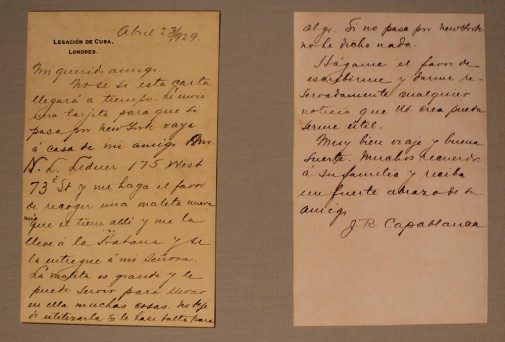 Abril 23/1929.
LEGACIÓN DE CUBA,
LONDRES.
Mi querido amigo.
No se si esta carta
llegará a tiempo. Le envio
una tarjeta para que si
pasa por New York vaya
á casa de mi amigo
N. L. Lederer 175 West
73d St y me haga el favor
de recoger una maleta nueva
mia que el tiene alli y me la
lleve á la Habana y se
la entregue á mi Señora.
La maleta es grande y le
puede servir para llevar
en ella muchas cosas. No deje
de utilizarla si le hace falta para
algo. Si no pasa por New York
no he dicho nada.
Hágame el favor de
escribirme y darme re-
servadamente cualquier
noticia que Ud. crea pueda
serme útil.
Muy bien viaje y buena
suerte. Muchos recuerdos
á su familia y reciba
un fuerte abrazo de su
amigo
J. R. Capablanca